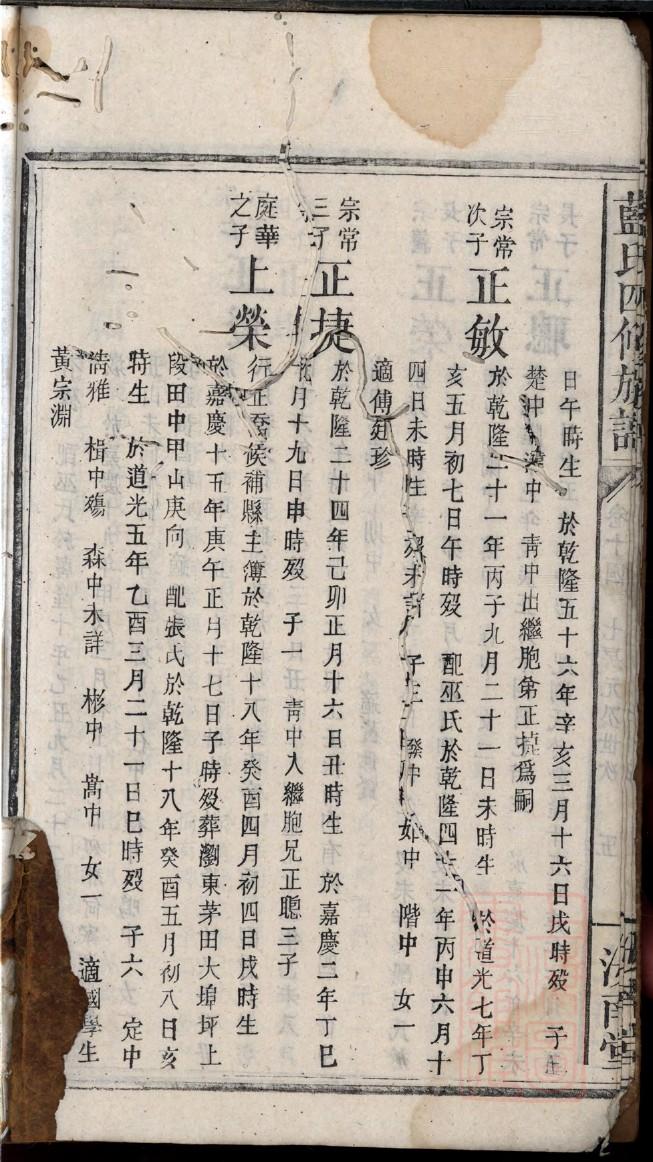 藍氏四修族譜
卷十四
五
汝南堂
日午時生 於乾隆五十六年辛亥三月十六日戌時歿 子
楚中 中 青中出繼胞弟正捷爲嗣
宗常次子正敏
於乾隆二十一年丙子九月二十一日未時生 於道光七年丁
亥五月初七日午時歿 配巫氏於乾隆四十一年丙申六月十
四日未時生 歿未詳 子三 發中 如中 階中 女一
適傅廷珍
宗常三子正捷
於乾隆二十四年己卯正月十六日丑時生 於嘉慶二年丁巳
月十九日申時歿 子一 青中入繼胞兄正聰三子
庭華之子上榮
行正喬候補縣主簿於乾隆十八年癸酉四月初四日戌時生
於嘉慶十五年庚午正月十七日子時歿葬瀏東茅田大埠坪上
段田中甲山庚向 配張氏於乾隆十八年癸酉五月初八日亥
時生 於道光五年乙酉三月二十一日巳時歿 子六 定中
清雅 楫中殤 森中未詳 彬中 嵩中 女一 適國學生
黃宗淵